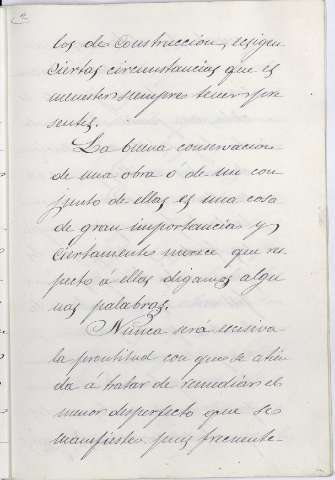 2
los de construccion, ecsigen
ciertas circunstancias que es
menester siempre tener pre
sentes.
La buena conservacion
de una obra ó de un con
junto de ellas es una cosa
de gran importancia y
ciertamente merece que res
pecto á ellas digamos algu
nas palabras.
Nunca será escesiva
la prontitud con que se atien
da á tratar de remediar el
menor desperfecto que se
manifieste pues frecuente-